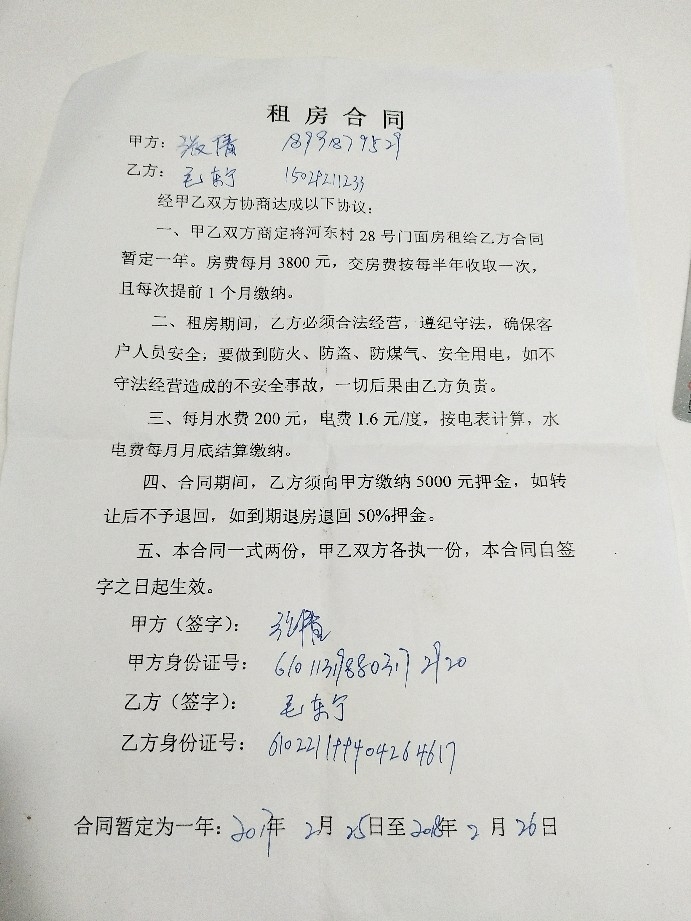 租房合同
甲方：张倩 18991879529
乙方：毛东宁 15029211233
经甲乙双方协商达成以下协议：
一、甲乙双方商定将河东村28号门面房租给乙方合同
暂定一年。房费每月3800元，交房费按每半年收取一次，
且每次提前1个月缴纳。
二、租房期间，乙方必须合法经营，遵纪守法，确保客
户人员安全；要做到防火、防盗、防煤气、安全用电，如不
守法经营造成的不安全事故，一切后果由乙方负责。
三、每月水费200元，电费1.6元/度，按电表计算，水
电费每月月底结算缴纳。
四、合同期间，乙方须向甲方缴纳5000元押金，如转
让后不予退回，如到期退房退回50%押金。
五、本合同一式两份，甲乙双方各执一份，本合同自签
字之日起生效。
甲方（签字）：张倩
甲方身份证号：610113198803172120
乙方（签字）：毛东宁
乙方身份证号：610221199404264617
合同暂定为一年：2017年 2月 25日至2018年 2月 26日